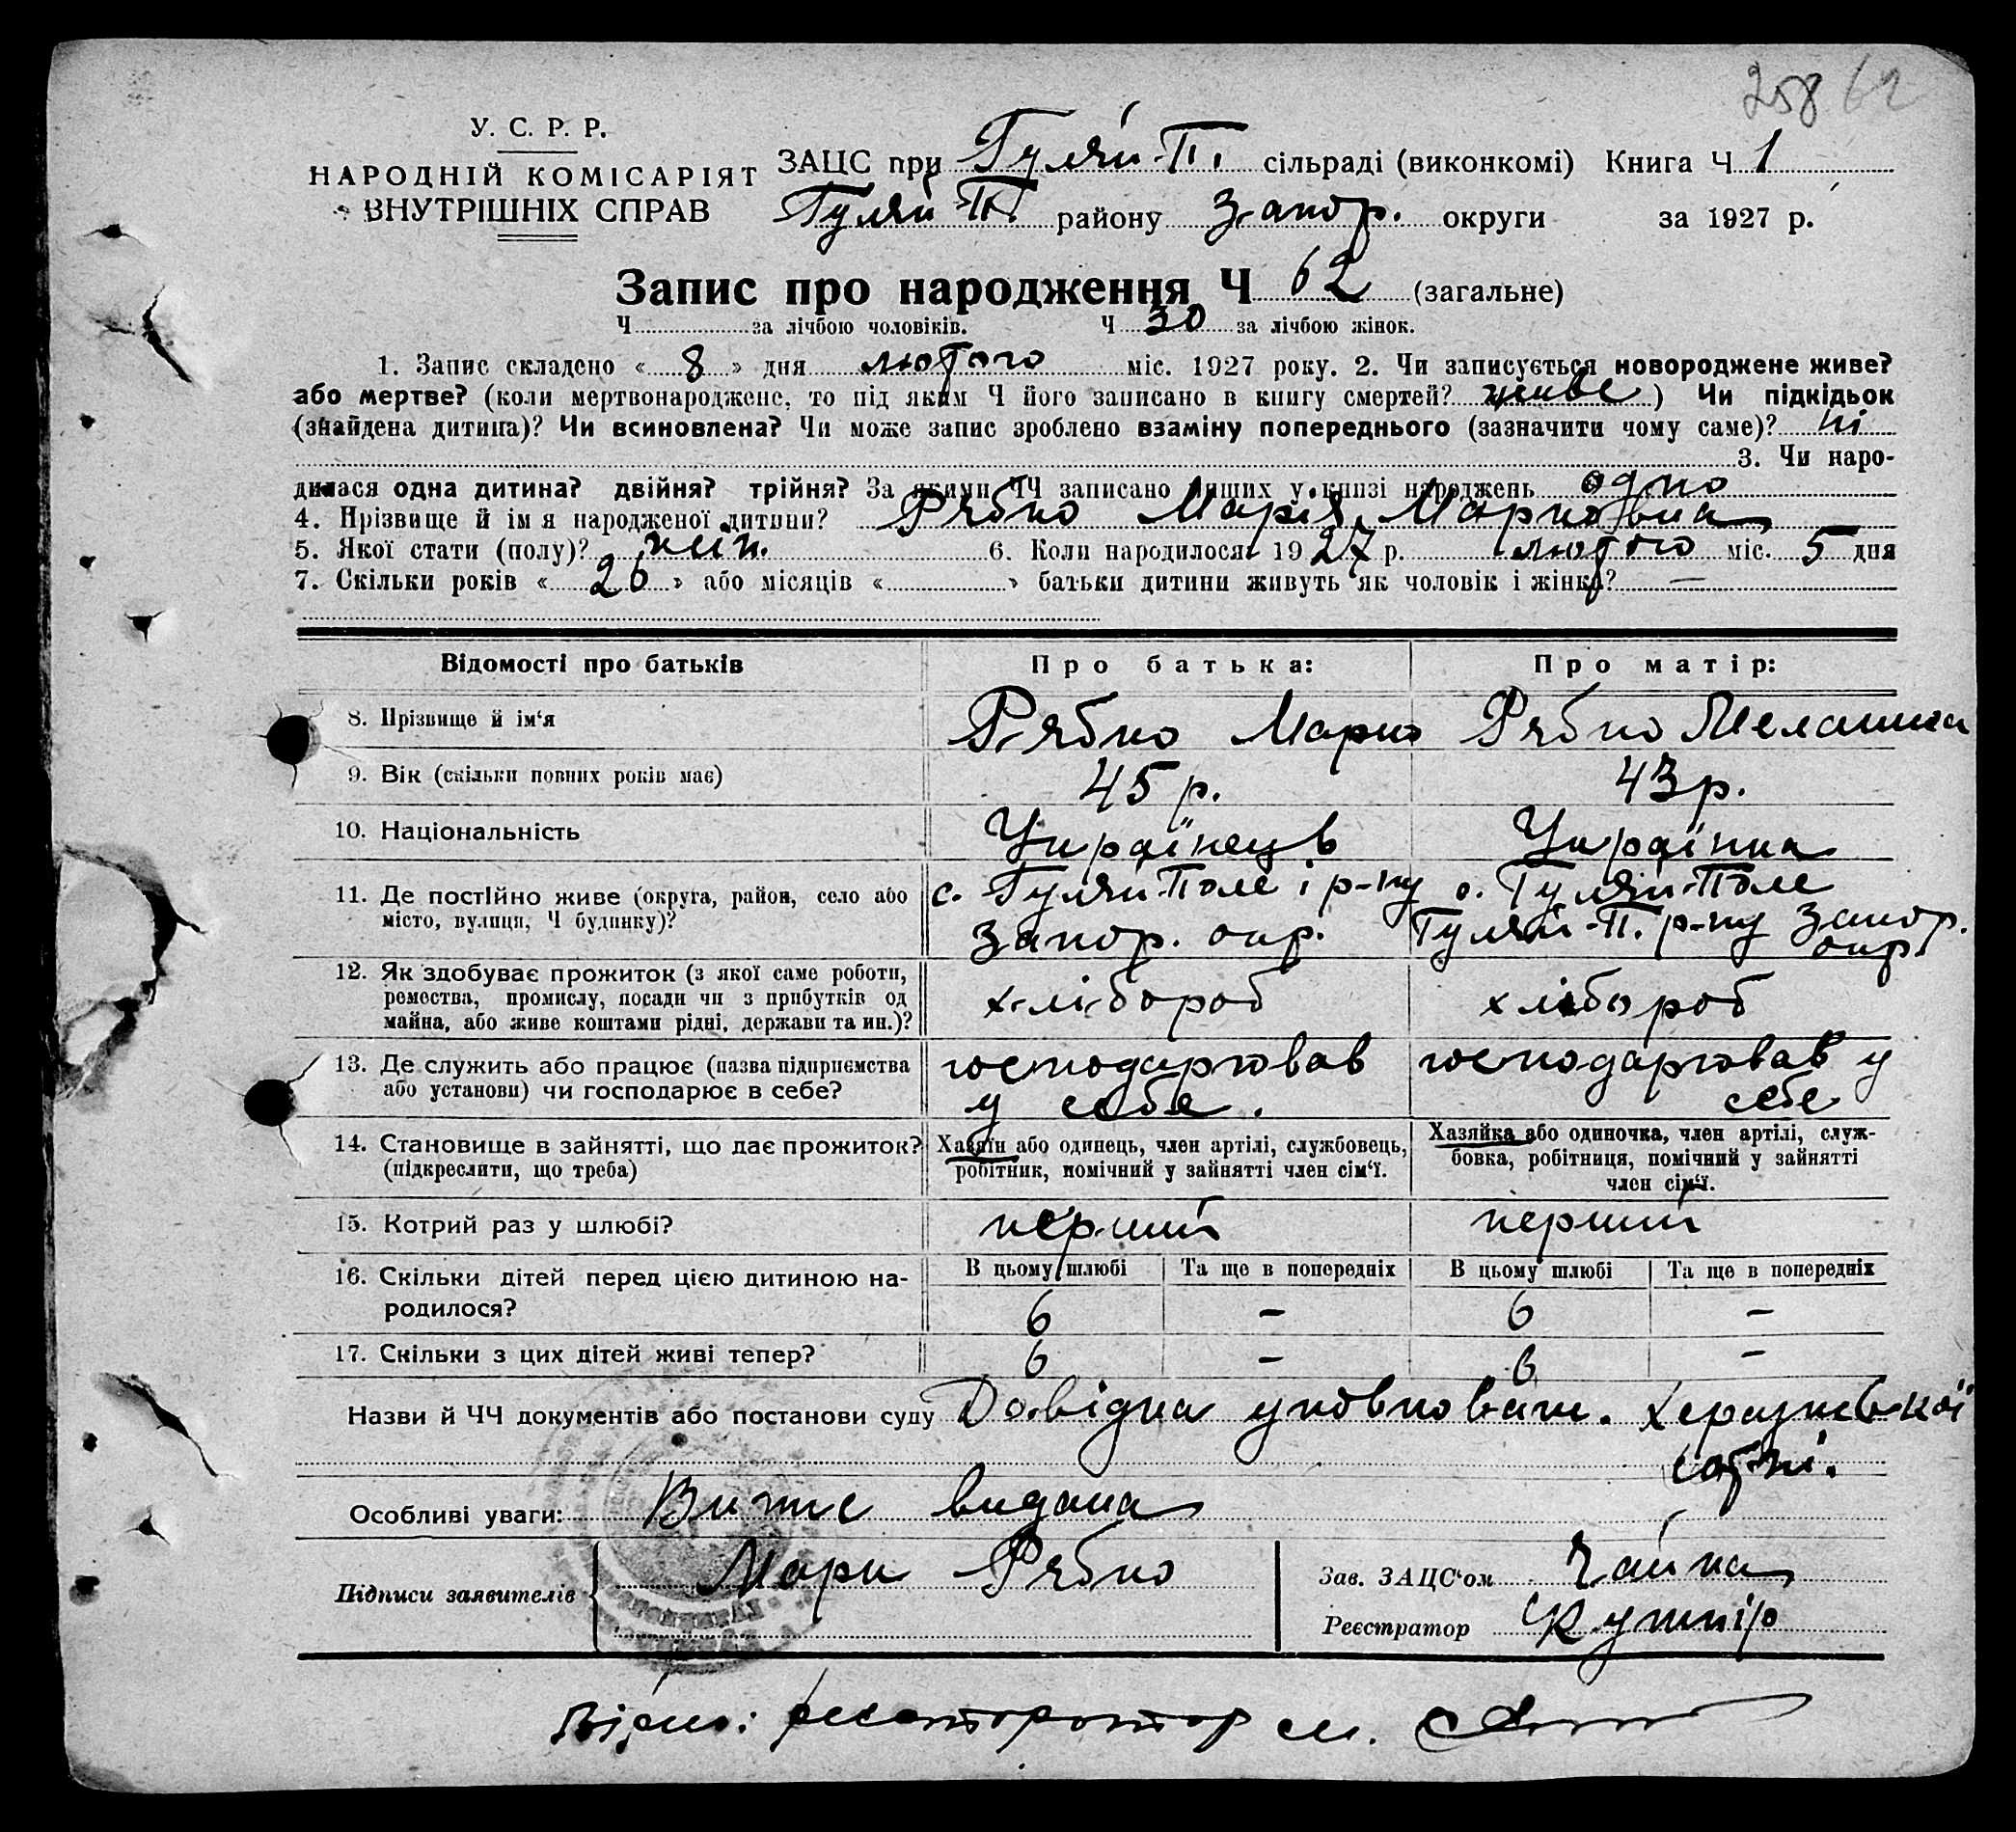 258 62
У. С. Р. Р.
НАРОДНІЙ КОМІСАРІЯТ
ВНУТРІШНІХ СПРАВ
ЗАЦС при Гуляй-П. сільраді (виконкомі) Книга Ч 1
Гуляй-П. району Запор. округи за 1927 р.
Запис про народження Ч 62 (загальне)
Ч за лічбою чоловіків. Ч 30 за лічбою жінок.
1. Запис складено « 8 » дня лютого міс. 1927 року. 2. Чи записується новороджене живе?
або мертве? (коли мертвонароджене, то під яким Ч його записано в книгу смертей? живе ) Чи підкідьок
(знайдена дитина)? Чи всиновлена? Чи може запис зроблено взаміну попереднього (зазначити чому саме)? ні
3. Чи наро-
дилася одна дитина? двійня? трійня? За якими ЧЧ записано инших у книзі народжень одно
4. Прізвище й ім я народженої дитини? Рябко Марія Марковна
5. Якої стати (полу)? жін. 6. Коли народилося 1927 р. лютого міс. 5 дня
7. Скільки років « 26 » або місяців « » батьки дитини живуть як чоловік і жінка? —
Відомості про батьків Про батька: Про матір:
8. Прізвище й ім‘я Рябко Марко Рябко Меланка
9. Вік (скільки повних років має) 45 р. 43 р.
10. Національність Українець Українка
11. Де постійно живе (округа, район, село або місто, вулиця, Ч будинку)? с. Гуляй-Поле і р-ну Запор. окр. с. Гуляй-Поле Гуляй-П. р-ну Запор. окр.
12. Як здобуває прожиток (з якої саме роботи, ремества, промислу, посади чи з прибутків од майна, або живе коштами рідні, держави та ин.)? хлібороб хлібороб
13. Де служить або працює (назва підприємства або установи) чи господарює в себе? господарював у себе. господарював у себе
14. Становище в зайнятті, що дає прожиток? (підкреслити, що треба) Хазяїн або одинець, член артілі, службовець, робітник, помічний у зайнятті член сім‘ї. Хазяйка або одиночка, член артілі, служ-бовка, робітниця, помічний у зайнятті член сім‘ї.
15. Котрий раз у шлюбі? перший перший
16. Скільки дітей перед цією дитиною на-родилося? В цьому шлюбі Та ще в попередніх В цьому шлюбі Та ще в попередніх
6 – 6 –
17. Скільки з цих дітей живі тепер? 6 – 6 –
Назви й ЧЧ документів або постанови суду Довідка уповноваж.
сотні.
Особливі уваги: видана
Підписи заявителів Марк Рябко
Зав. ЗАЦС‘ом Чайка
Реєстратор Кушнір
Вірно: реєстратор